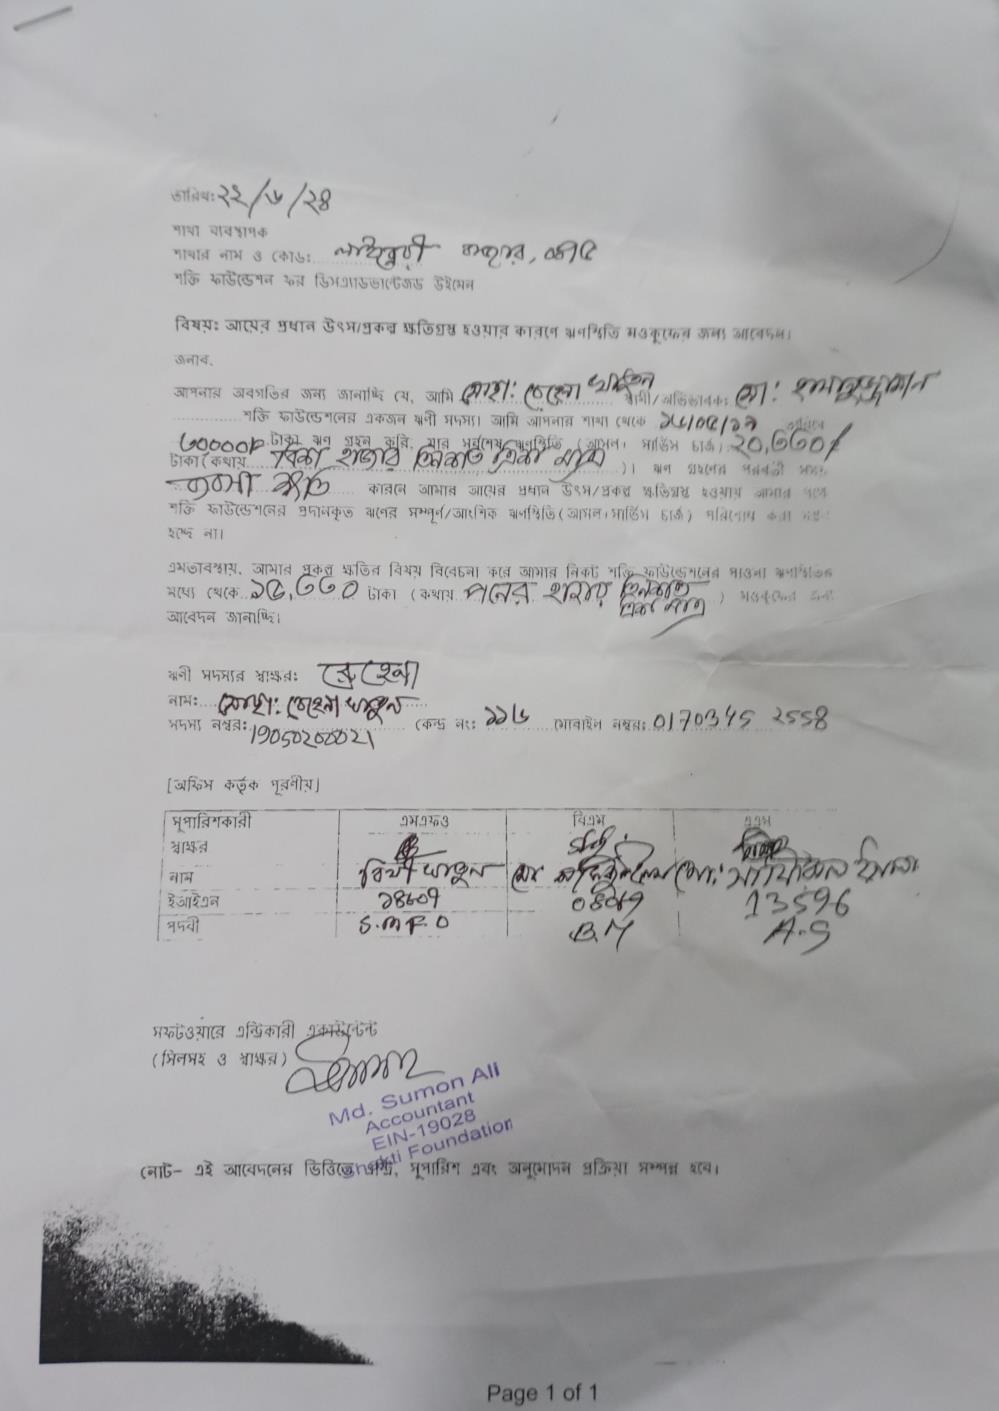 তারিখ: ২২/৬/২৪
শাখা ব্যবস্থাপক
শাখার নাম ও কোড: বাজার,
শক্তি ফাউন্ডেশন ফর ডিসএ্যাডভান্টেজড উইমেন
বিষয়: আয়ের প্রধান উৎস/প্রকল্প ক্ষতিগ্রস্থ হওয়ার কারণে ঋণস্থিতি মওকুফের জন্য আবেদন।
জনাব,
আপনার অবগতির জন্য জানাচ্ছি যে, আমি মোছা: রেহেনা খাতুন স্বামী/অভিভাবক: মো:
শক্তি ফাউন্ডেশনের একজন ঋণী সদস্য। আমি আপনার শাখা থেকে তারিখে
৩০০০০/- টাকা ঋণ গ্রহন করি, যার সর্বশেষ ঋণস্থিতি (আসল+ সার্ভিস চার্জ) ২০,৩৩০/
টাকা (কথায় বিশ হাজার তিনশত ত্রিশ মাত্র )। ঋণ গ্রহনের পরবর্তী সময়
ব্যবসা ক্ষতি কারনে আমার আয়ের প্রধান উৎস/প্রকল্প ক্ষতিগ্রস্থ হওয়ায় আমার পক্ষে
শক্তি ফাউন্ডেশনের প্রদানকৃত ঋণের সম্পূর্ণ/আংশিক ঋণস্থিতি (আসল+সার্ভিস চার্জ) পরিশোধ করা সম্ভব
হচ্ছে না।
এমতাবস্থায়, আমার প্রকল্প ক্ষতির বিষয় বিবেচনা করে আমার নিকট শক্তি ফাউন্ডেশনের পাওনা ঋণস্থিতির
মধ্যে থেকে ১৫,৩৩০ টাকা (কথায় পনের হাজার তিনশত ত্রিশ মাত্র ) মওকুফের জন্য
আবেদন জানাচ্ছি।
ঋণী সদস্যর স্বাক্ষর: রেহেনা
নাম: মোছা: রেহেনা খাতুন
সদস্য নম্বর: 19050200021 কেন্দ্র নং: ১১৬ মোবাইল নম্বর: 01703452558
[অফিস কর্তৃক পূরণীয়]
সুপারিশকারী এমএফও বিএম এএম
স্বাক্ষর
নাম খাতুন মো মো: ইসলাম
ইআইএন ১৪৬০৭ 13596
পদবী S.M.F.O B.M A.S
সফটওয়ারে এন্ট্রিকারী একাউন্টেন্ট
(সিলসহ ও স্বাক্ষর)
Md. Sumon Ali
Accountant
EIN-19028
Shakti Foundation
নোট- এই আবেদনের ভিত্তিতে এন্ট্রি, সুপারিশ এবং অনুমোদন প্রক্রিয়া সম্পন্ন হবে।
Page 1 of 1